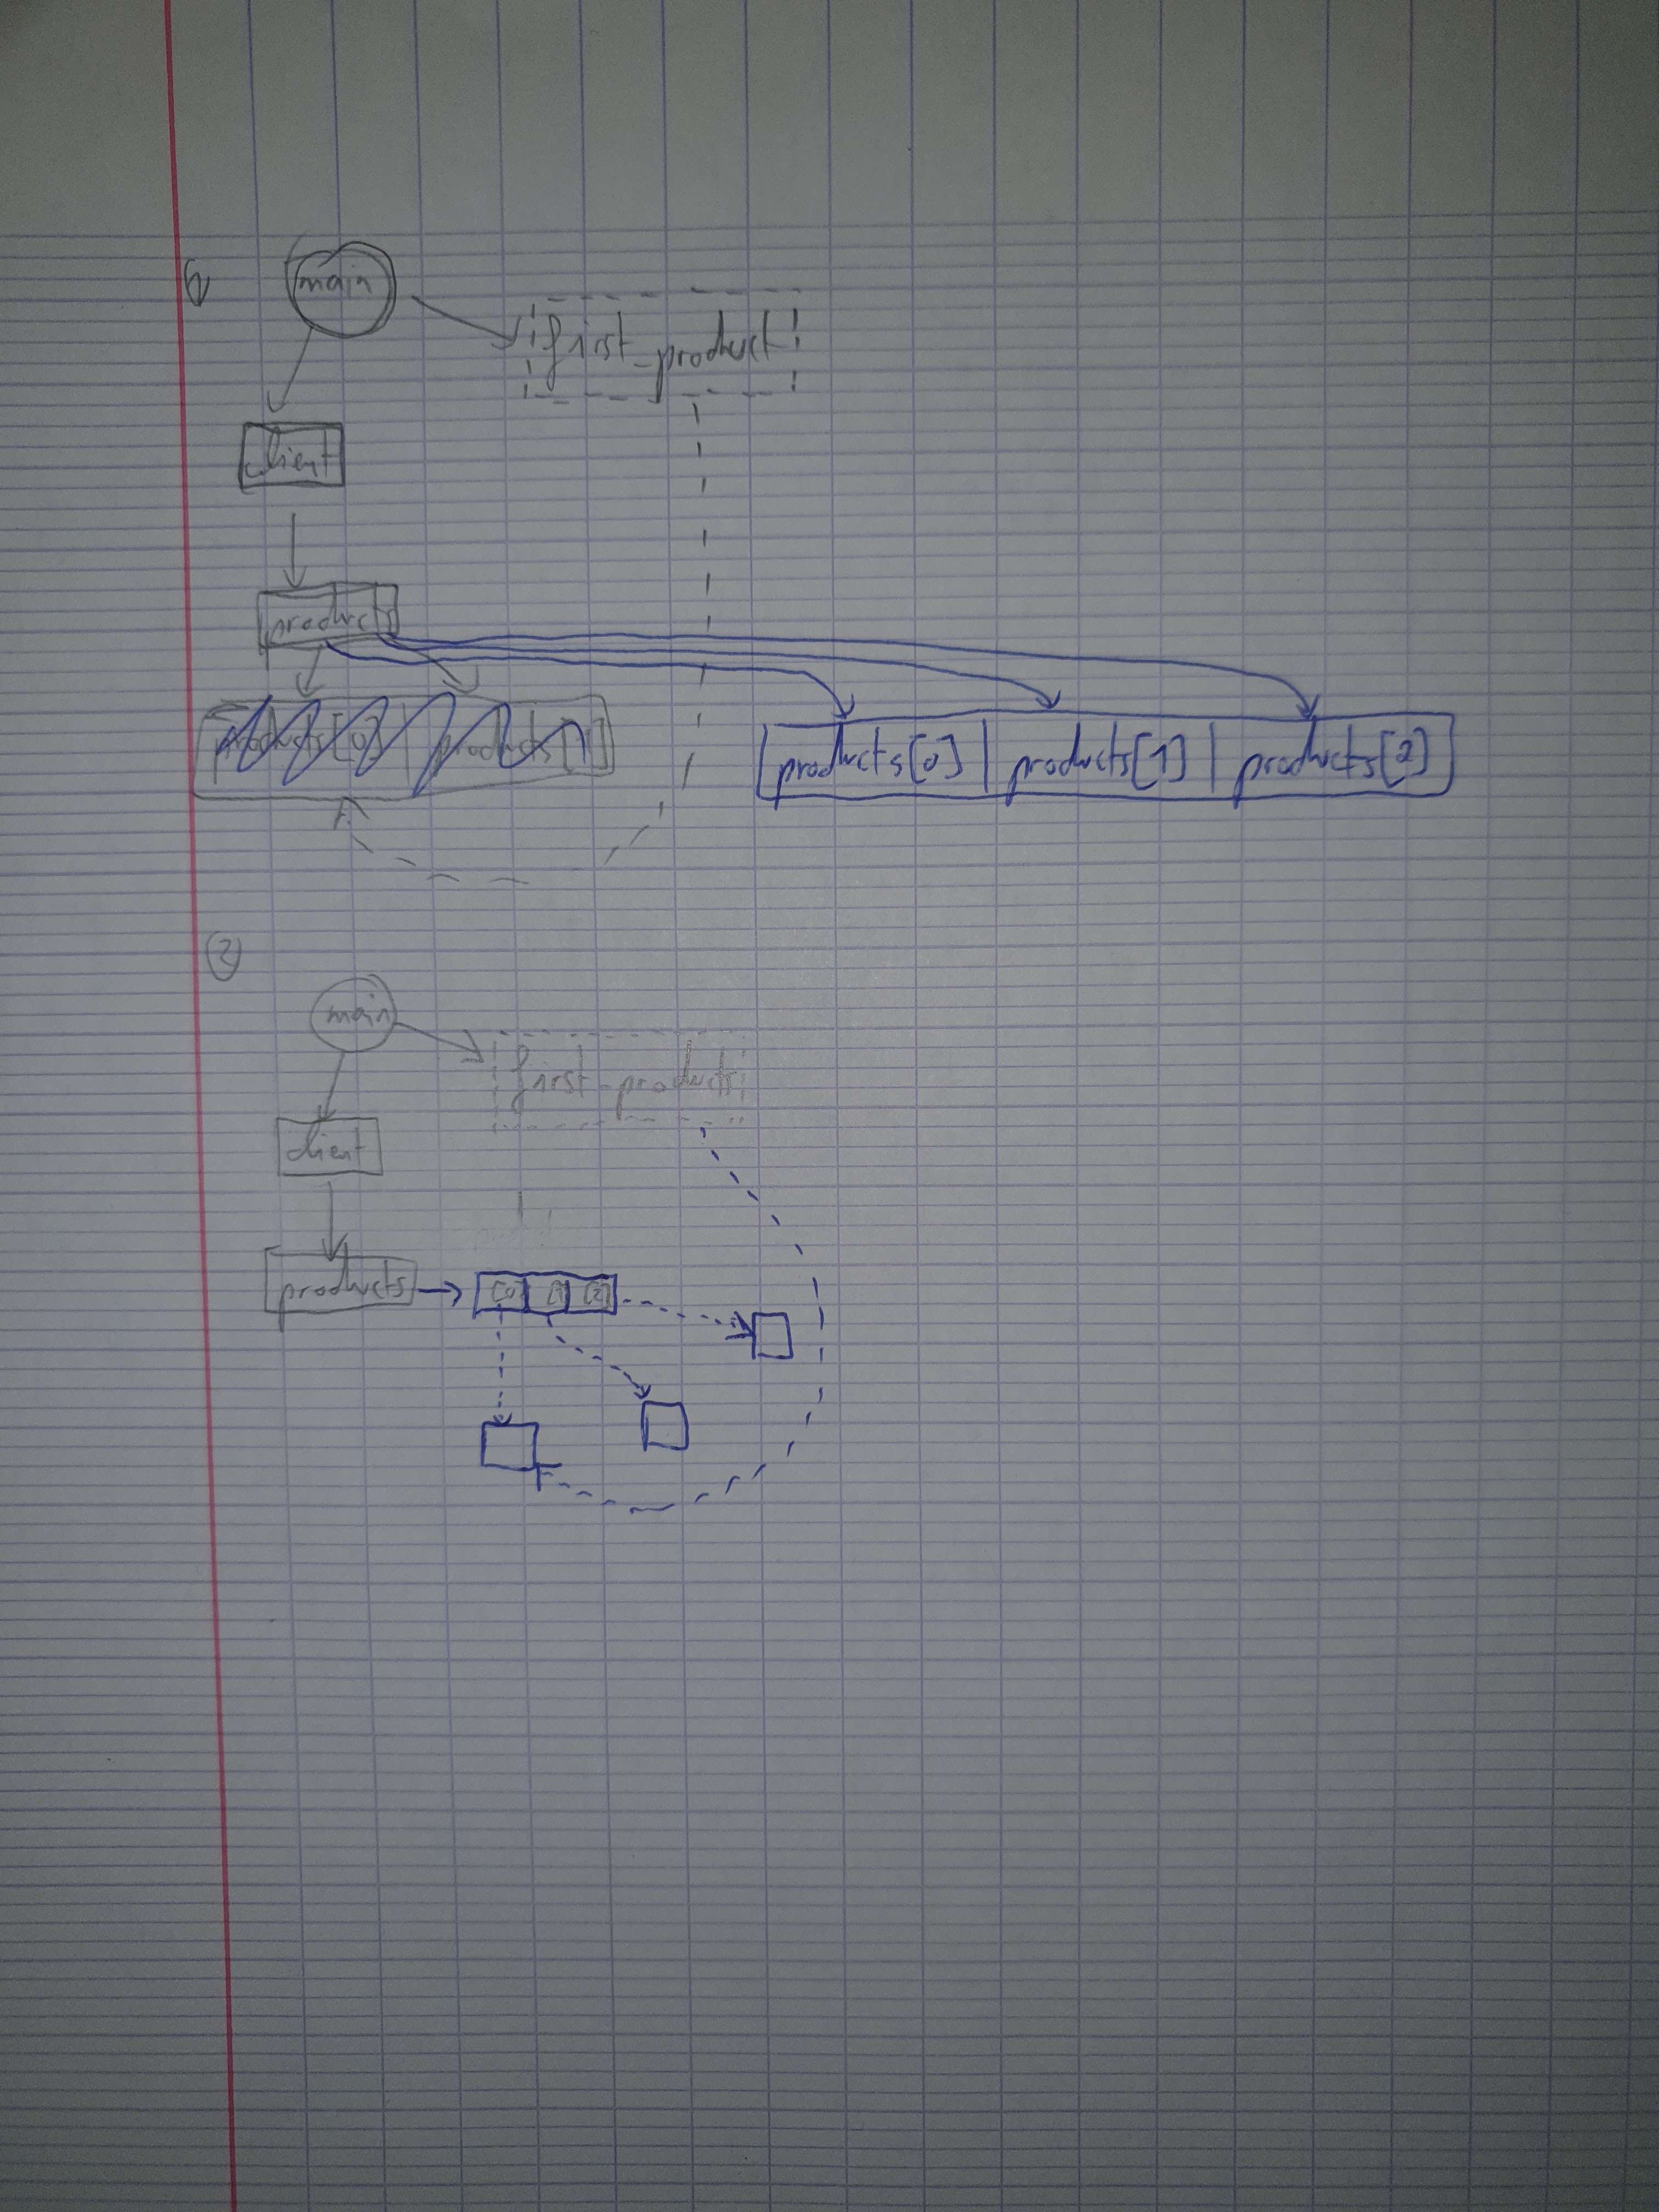 main
first_product
client
products
products[0] | products[1]
products[0] | products[1] | products[2]
②
main
first_product
client
products
[0] [1] [2]